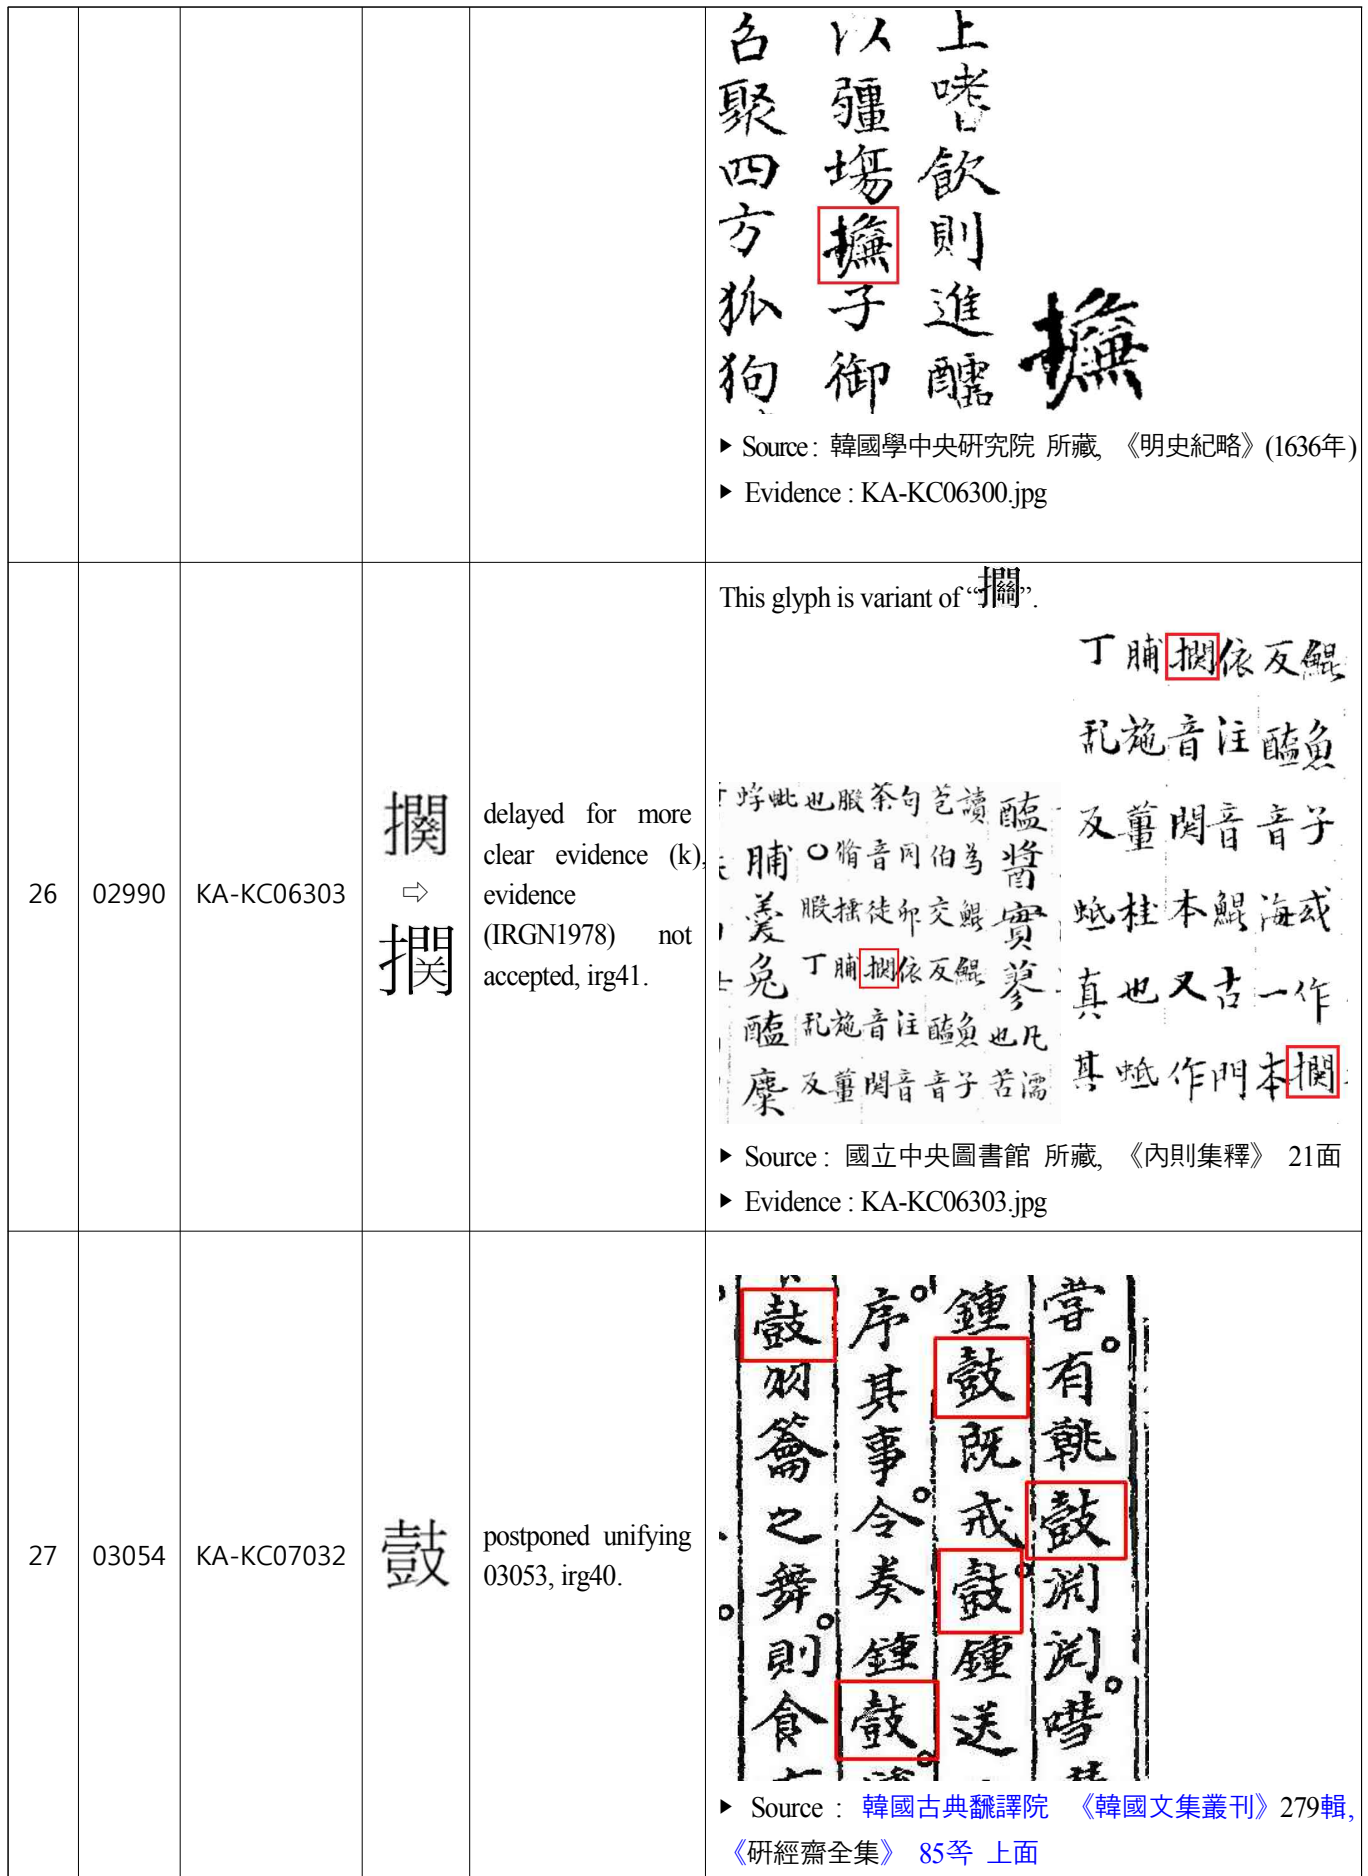 上嗜飮則進醹
以疆場子御
召聚四方狐狗
▶ Source : 韓國學中央硏究院 所藏, 《明史紀略》(1636年)
▶ Evidence : KA-KC06300.jpg
26
02990
KA-KC06303
⇨
delayed for more
clear evidence (k),
evidence
(IRGN1978) not
accepted, irg41.
This glyph is variant of “”.
鯤魚子或作
反醢音海一本
依注音鯤古門
関音本又作
脯施菫桂也蚳
丁乱反蚳真其
醢醬實蓼
脯羹兔醢麋
▶ Source : 國立中央圖書館 所藏, 《內則集釋》 21面
▶ Evidence : KA-KC06303.jpg
27
03054
KA-KC07032
皷
postponed unifying
03053, irg40.
甞有鞉皷淵淵嘒
鍾皷旣戒皷鍾送
序其事令奏鍾皷
皷羽籥之舞則食
▶ Source : 韓國古典飜譯院 《韓國文集叢刊》279輯,
《硏經齋全集》 85쪽 上面